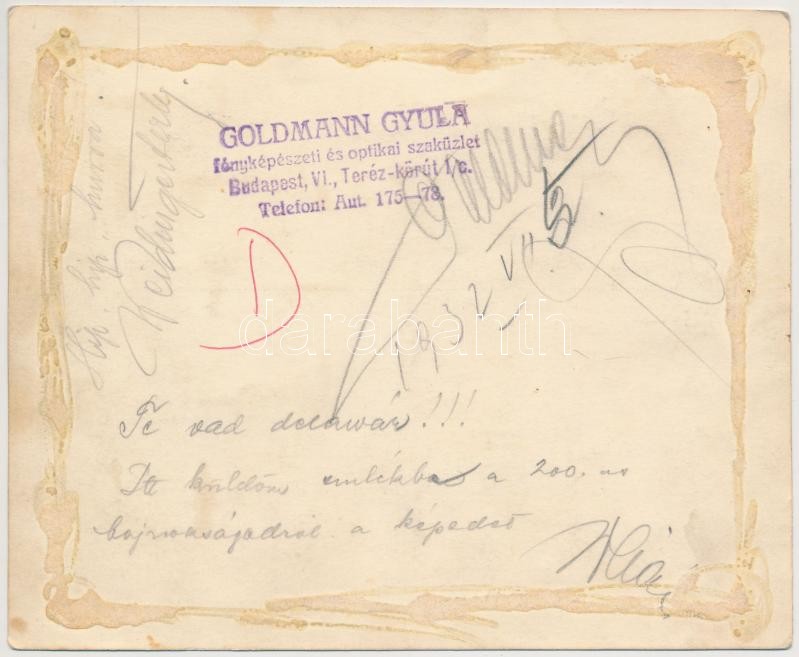 GOLDMANN GYULA
fényképészeti és optikai szaküzlet
Budapest, VI., Teréz-körút 1/c.
Telefon: Aut. 175—78.
Hip, hip, hurrá
D
1932 VII 5
darabanth
Te vad delawár!!!
Itt küldöm emlékbe a 200.-as
bajnokságodról a képedet